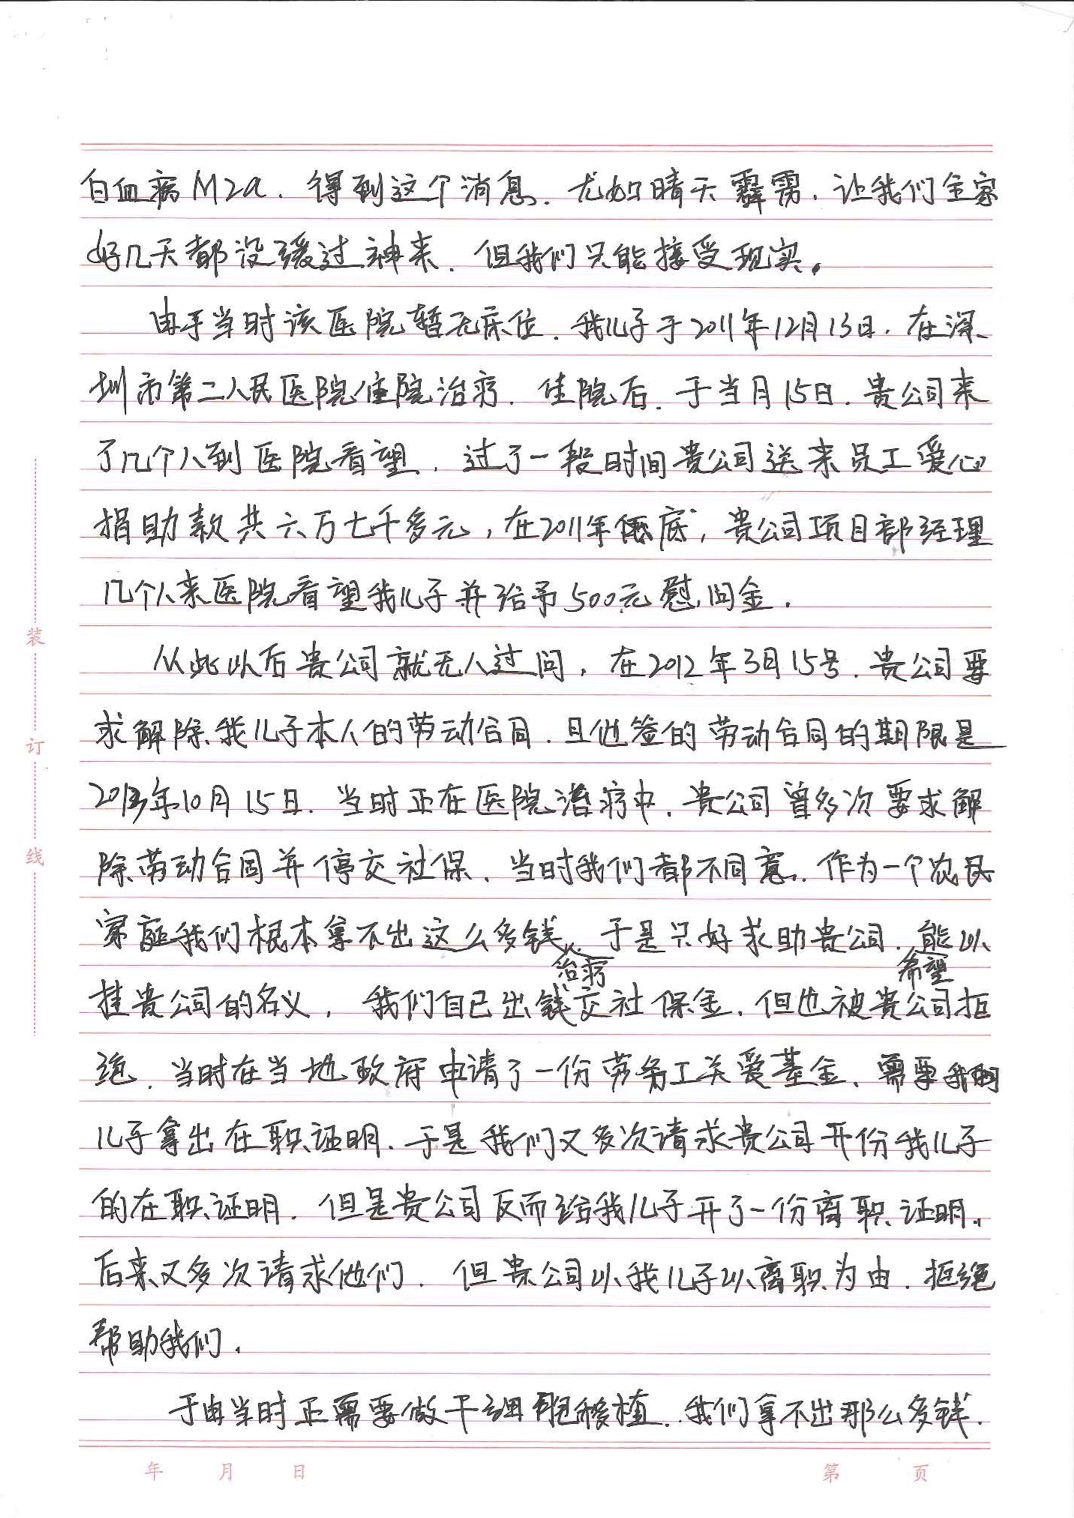 白血病M2a.得到这个消息.尤如晴天霹雳.让我们全家
好几天都没缓过神来.但我们只能接受现实。
由于当时该医院暂无床位.我儿子于2011年12月13日.在深
圳市第二人民医院住院治疗.住院后.于当月15日.贵公司来
了几个人到医院看望.过了一段时间贵公司送来员工爱心
捐助款共六万七千多元,在2011年底,贵公司项目部经理
几个人来医院看望我儿子并给予500元慰问金.
从此以后贵公司就无人过问,在2012年3月15号.贵公司要
求解除我儿子本人的劳动合同.且他签的劳动合同的期限是
2013年10月15日.当时正在医院治疗中.贵公司曾多次要求解
除劳动合同并停交社保.当时我们都不同意.作为一个农民
家庭我们根本拿不出这么多钱治疗.于是只好求助贵公司.希望能以
挂贵公司的名义,我们自己出钱交社保金.但也被贵公司拒
绝.当时在当地政府申请了一份劳务工关爱基金、需要我
儿子拿出在职证明.于是我们又多次请求贵公司开份我儿子
的在职证明.但是贵公司反而给我儿子开了一份离职证明.
后来又多次请求他们.但贵公司以我儿子以离职为由.拒绝
帮助我们.
于由当时正需要做干细胞移植.我们拿不出那么多钱.
装
订
线
年 月 日
第 页